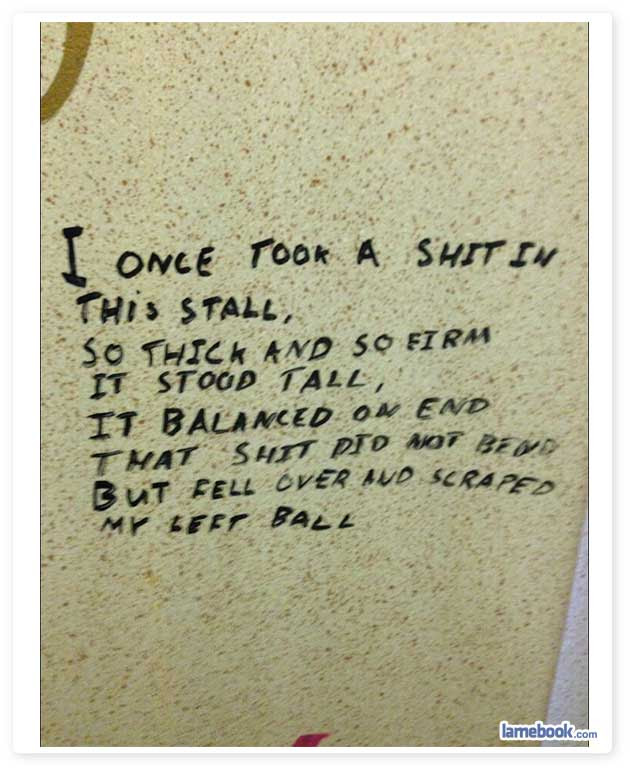 I ONCE TOOK A SHIT IN
THIS STALL,
SO THICK AND SO FIRM
IT STOOD TALL,
IT BALANCED ON END
THAT SHIT DID NOT BEND
BUT FELL OVER AND SCRAPED
MY LEFT BALL
lamebook.com